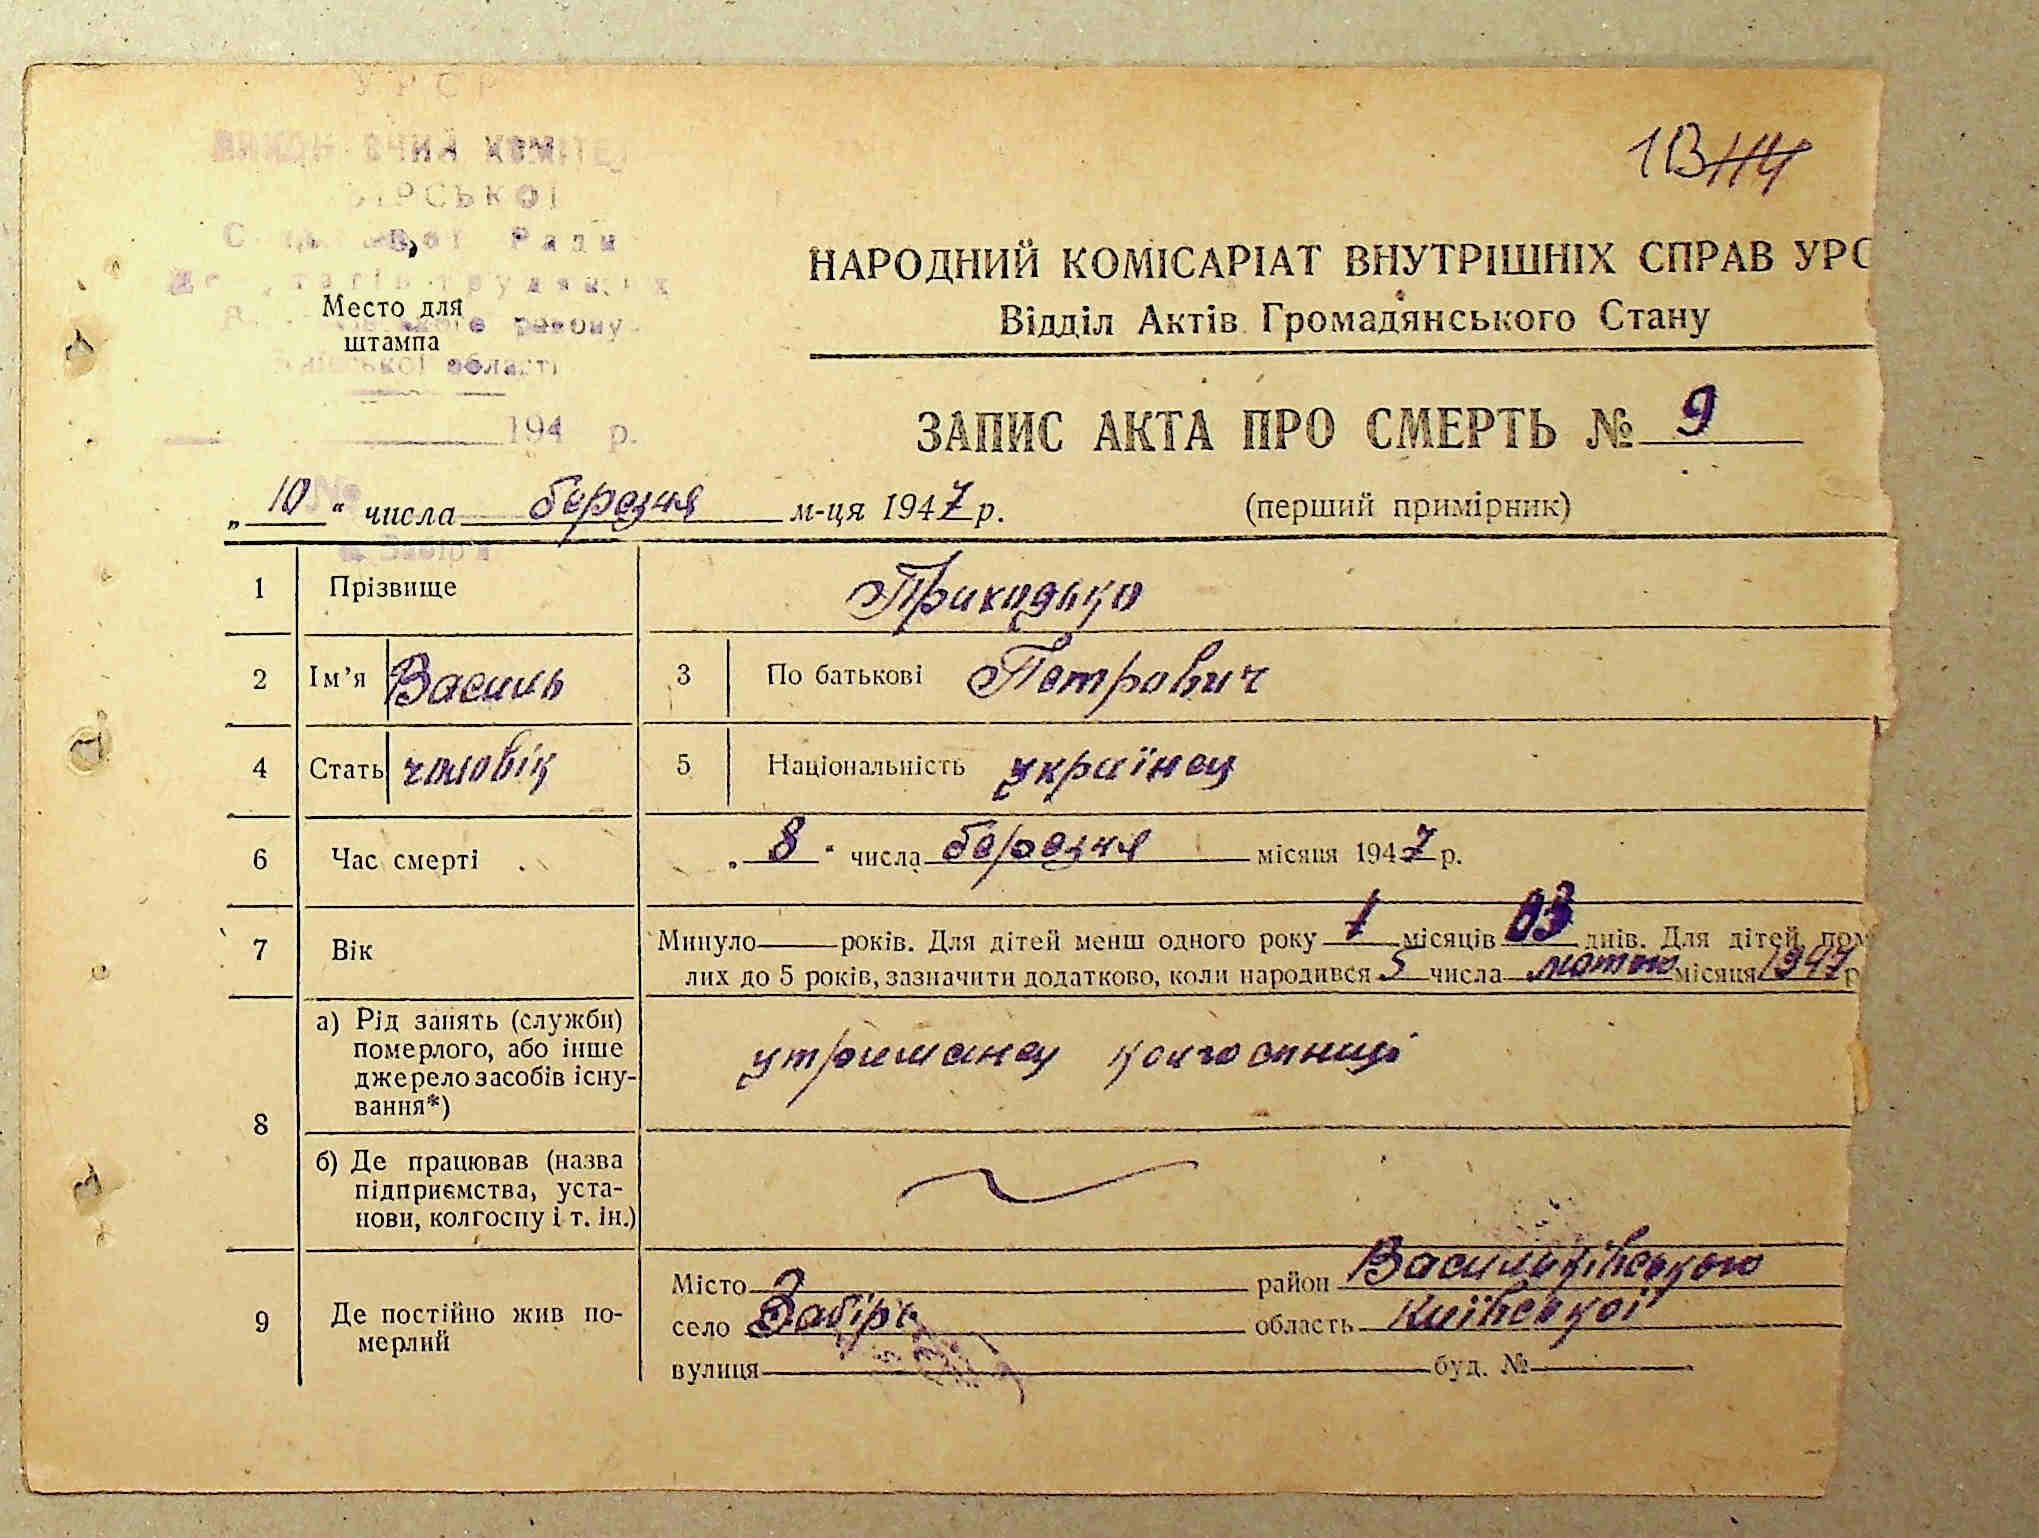 УРСР
КОМІТЕ
Ради
Место для
району
штампа
області
194 р.
113 114
НАРОДНИЙ КОМІСАРІАТ ВНУТРІШНІХ СПРАВ УРС
Відділ Актів Громадянського Стану
ЗАПИС АКТА ПРО СМЕРТЬ № 9
„10“ числа березня м-ця 1947 р. (перший примірник)
1 Прізвище Приходько
2 Ім'я Василь 3 По батькові Петрович
4 Стать чоловік 5 Національність українец
6 Час смерті „8“ числа березня місяця 1947 р.
7 Вік Минуло років. Для дітей менш одного року 1 місяців 03 днів. Для дітей, пом
лих до 5 років, зазначити додатково, коли народився 5 числа лютого місяця 1947 р
8 а) Рід занять (служби)
померлого, або інше
джерело засобів існу-
вання*)
утриманец колгоспниці
б) Де працював (назва
підприємства, уста-
нови, колгоспу і т. ін.)
9 Де постійно жив по-
мерлий
Місто район Васильківського
село Забірь область Київської
вулиця буд. №